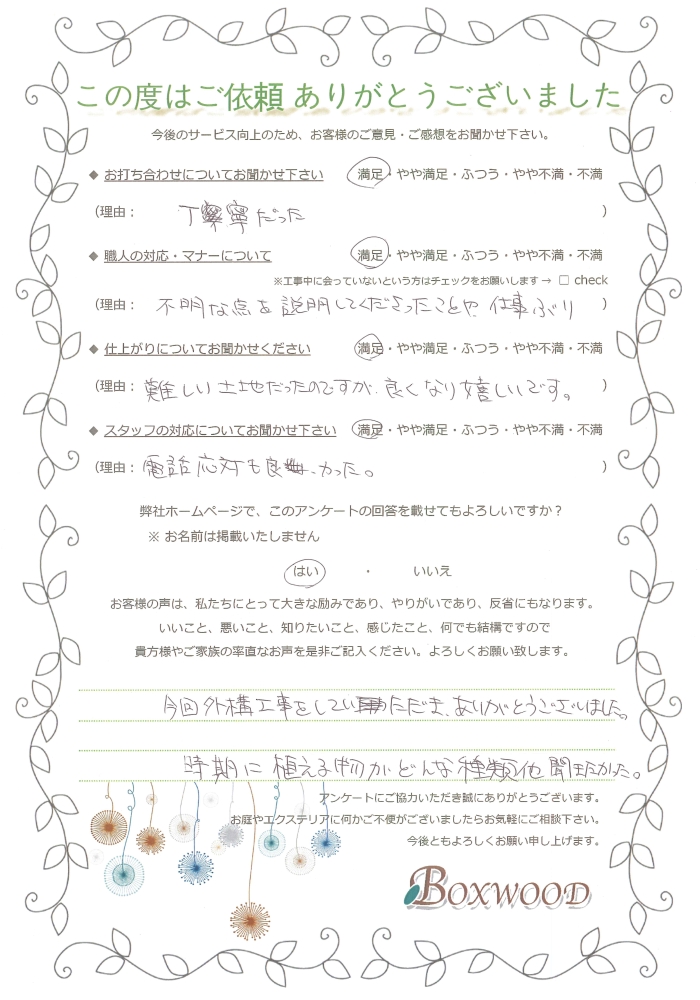 この度はご依頼 ありがとうございました
今後のサービス向上のため、お客様のご意見・ご感想をお聞かせ下さい。
◆ お打ち合わせについてお聞かせ下さい 満足・やや満足・ふつう・やや不満・不満
（理由： 丁寧だった ）
◆ 職人の対応・マナーについて 満足・やや満足・ふつう・やや不満・不満
※工事中に会っていないという方はチェックをお願いします→ □ check
（理由： 不明な点を説明してくださったことや仕事ぶり ）
◆ 仕上がりについてお聞かせください 満足・やや満足・ふつう・やや不満・不満
（理由： 難しい土地だったのですが、良くなり嬉しいです。 ）
◆ スタッフの対応についてお聞かせ下さい 満足・やや満足・ふつう・やや不満・不満
（理由： 電話応対も良かった。 ）
弊社ホームページで、このアンケートの回答を載せてもよろしいですか？
※ お名前は掲載いたしません
はい ・ いいえ
お客様の声は、私たちにとって大きな励みであり、やりがいであり、反省にもなります。
いいこと、悪いこと、知りたいこと、感じたこと、何でも結構ですので
貴方様やご家族の率直なお声を是非ご記入ください。よろしくお願い致します。
今回外構工事をしていただき、ありがとうございました。
時期に植える物がどんな種類他聞きたかった。
アンケートにご協力いただき誠にありがとうございます。
お庭やエクステリアに何かご不便がございましたらお気軽にご相談下さい。
今後ともよろしくお願い申し上げます。
BOXWOOD